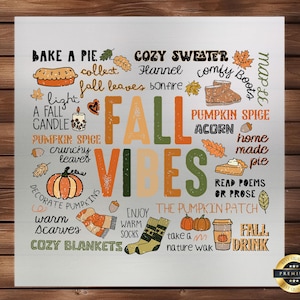 BAKE A PIE
COZY SWEATER
collect
fall leaves
flannel
comfy Boots
maple
bonfire
light
A FALL
CANDLE
FALL
VIBES
PUMPKIN SPICE
ACORN
PUMPKIN SPICE
crunchy
leaves
home
made
pie
DECORATE PUMPKINS
READ POEMS
OR PROSE
warm
scarves
ENJOY
WARM
SOCKS
THE PUMPKIN PATCH
take a
nature walk
FALL
DRINK
COZY BLANKETS
PREMIUM